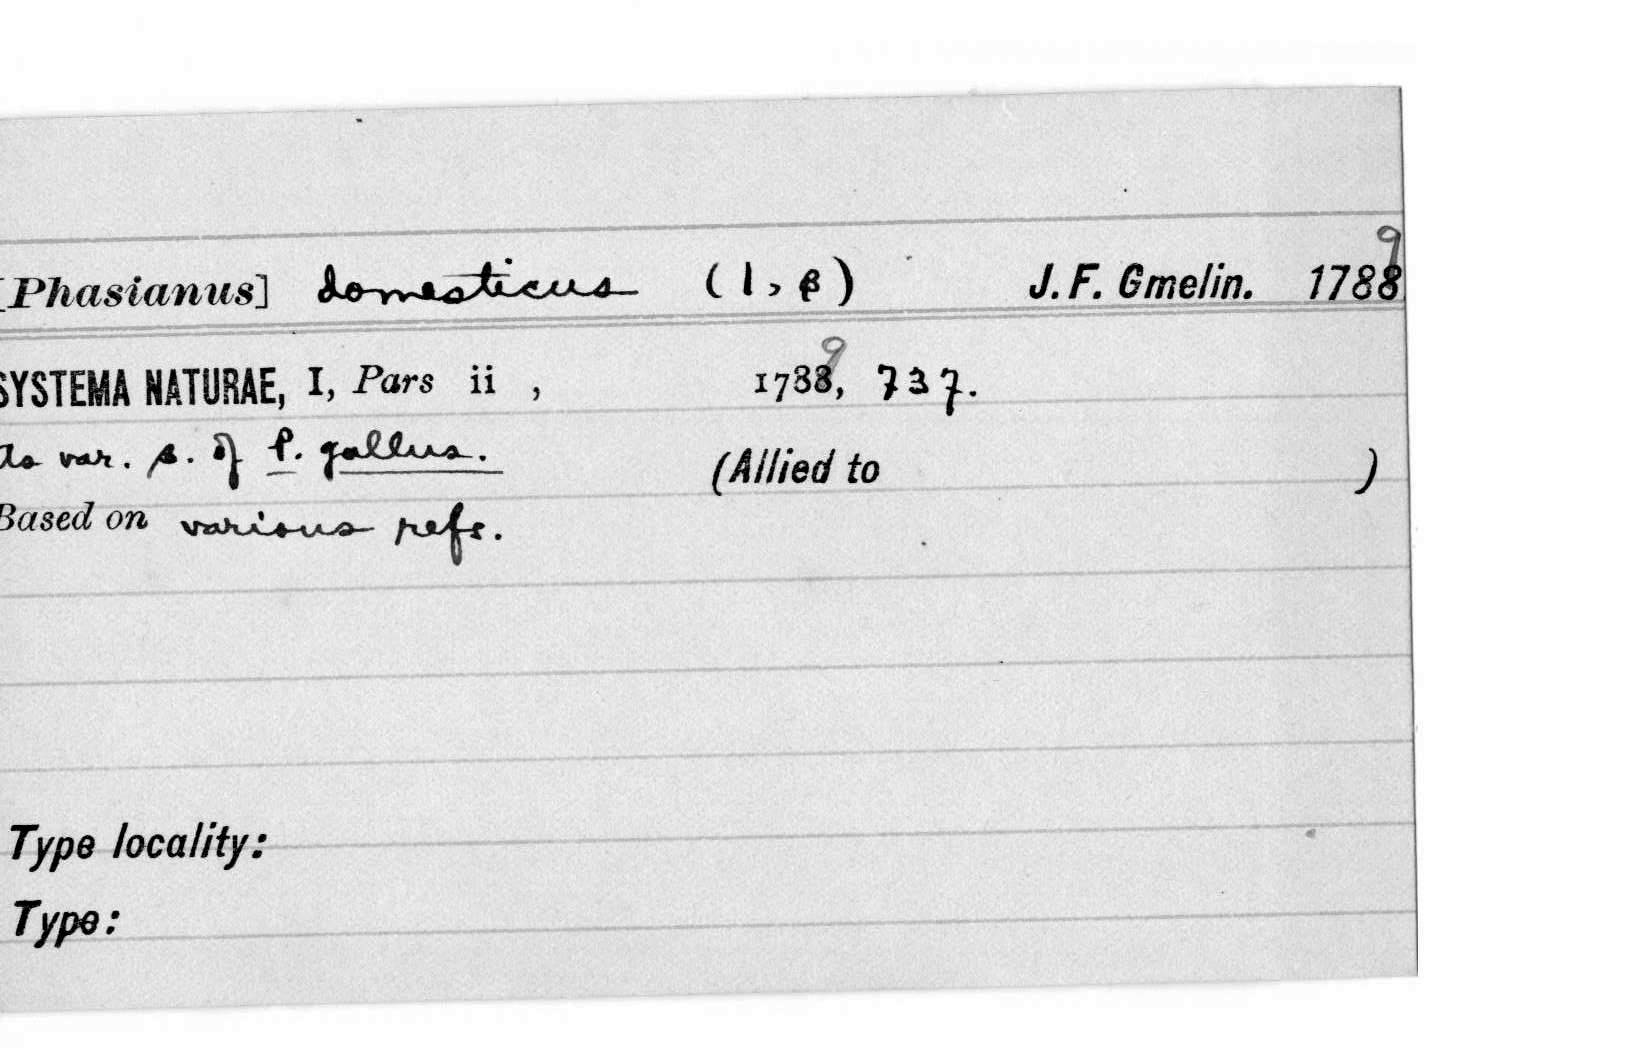 [Phasianus] domesticus (1, β) J. F. Gmelin. 1788 9
SYSTEMA NATURAE, I, Pars ii , 1788 9, 737.
As var. β. of P. gallus. (Allied to )
Based on various refs.
Type locality:
Type: